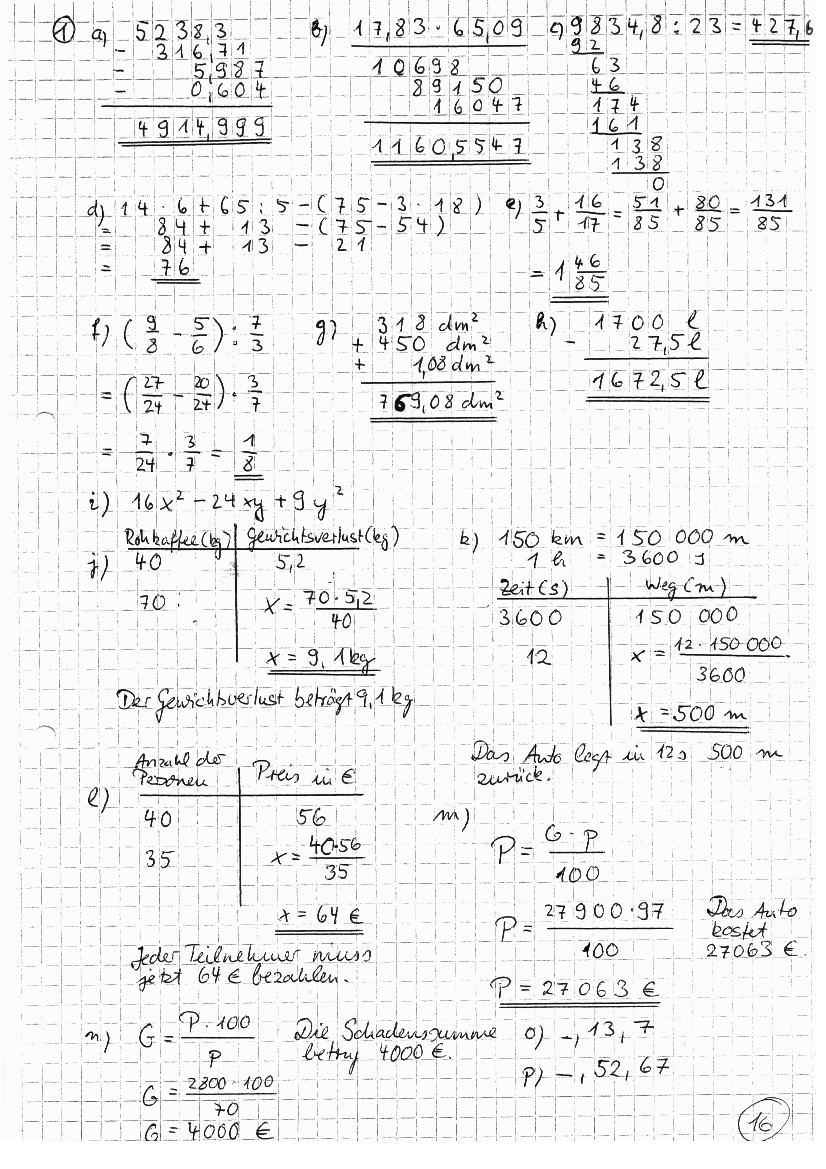 ① a) 5238,3
- 316,71
- 5,987
- 0,604
4914,999
b) 17,83 · 65,09
10698
89150
16047
1160,5547
c) 9834,8 : 23 = 427,6
92
63
46
174
161
138
138
0
d) 14 · 6 + 65 : 5 - (75 - 3 · 18)
= 84 + 13 - (75 - 54)
= 84 + 13 - 21
= 76
e) 3/5 + 16/17 = 51/85 + 80/85 = 131/85
= 1 46/85
f) (9/8 - 5/6) : 7/3
= (27/24 - 20/24) · 3/7
= 7/24 · 3/7 = 1/8
g) 318 dm²
+ 450 dm²
+ 1,08 dm²
769,08 dm²
h) 1700 l
- 27,5 l
1672,5 l
i) 16x² - 24xy + 9y²
j) Rohkaffee (kg) Gewichtsverlust (kg)
40 5,2
70 x = 70·5,2/40
x = 9,1 kg
Der Gewichtsverlust beträgt 9,1 kg
k) 150 km = 150 000 m
1 h = 3600 s
Zeit (s) Weg (m)
3600 150 000
12 x = 12 · 150 000/3600
x = 500 m
Das Auto legt in 12s 500 m
zurück.
l) Anzahl der
Personen Preis in €
40 56
35 x = 40·56/35
x = 64 €
Jeder Teilnehmer muss
jetzt 64 € bezahlen.
m) P = G · p/100
P = 27900 · 97/100
P = 27063 €
Das Auto
kostet
27063 €.
n) G = P · 100/p
G = 2800 · 100/70
G = 4000 €
Die Schadenssumme
betrug 4000 €.
o) -, 13, 7
p) -, 52, 67
16